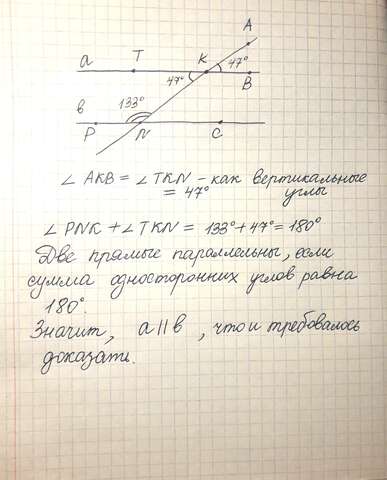 A
a T K 47° B
47°
в 133°
P N C
∠ AKB = ∠ TKN - как вертикальные
= 47° углы
∠ PNK + ∠ TKN = 133° + 47° = 180°
Две прямые параллельны, если
сумма односторонних углов равна
180°.
Значит, a || в, что и требовалось
доказать.